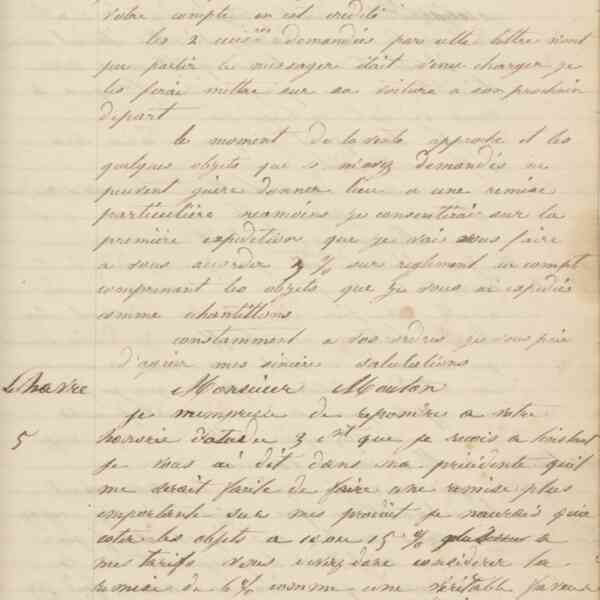 votre compte en est crédité
les 2 demandés par cette lettre n'ont
pu partir le messager était venu charger je
les ferai mettre sur sa voiture a son prochain
départ
le moment de la vente approche et les
quelques objets que s m'avez demandés ne
peuvent guère donner lieu a une remise
particulière neamoins je consentirai sur la
première expédition que je vais vous faire
a vous accorder % sur règlement ce compt
comprenant les objets que je vous ai expédiés
comme échantillons
constamment a vos ordres je vous prie
d'agréer mes sincère salutations
Le havre
Monsieur Mouton
je m'empresse de repondre a votre
5
honorée datée de 3 ct que je recois a l'instant
je vous ai dit dans ma précédente qu'il
me serait facile de faire une remise plus
importante sur mes produit je n'aurais qu'a
coter les objets a 10 ou 15 % plus a
mes tarifs vous devez donc considerer la
remise de 6 % comme une véritable faveur